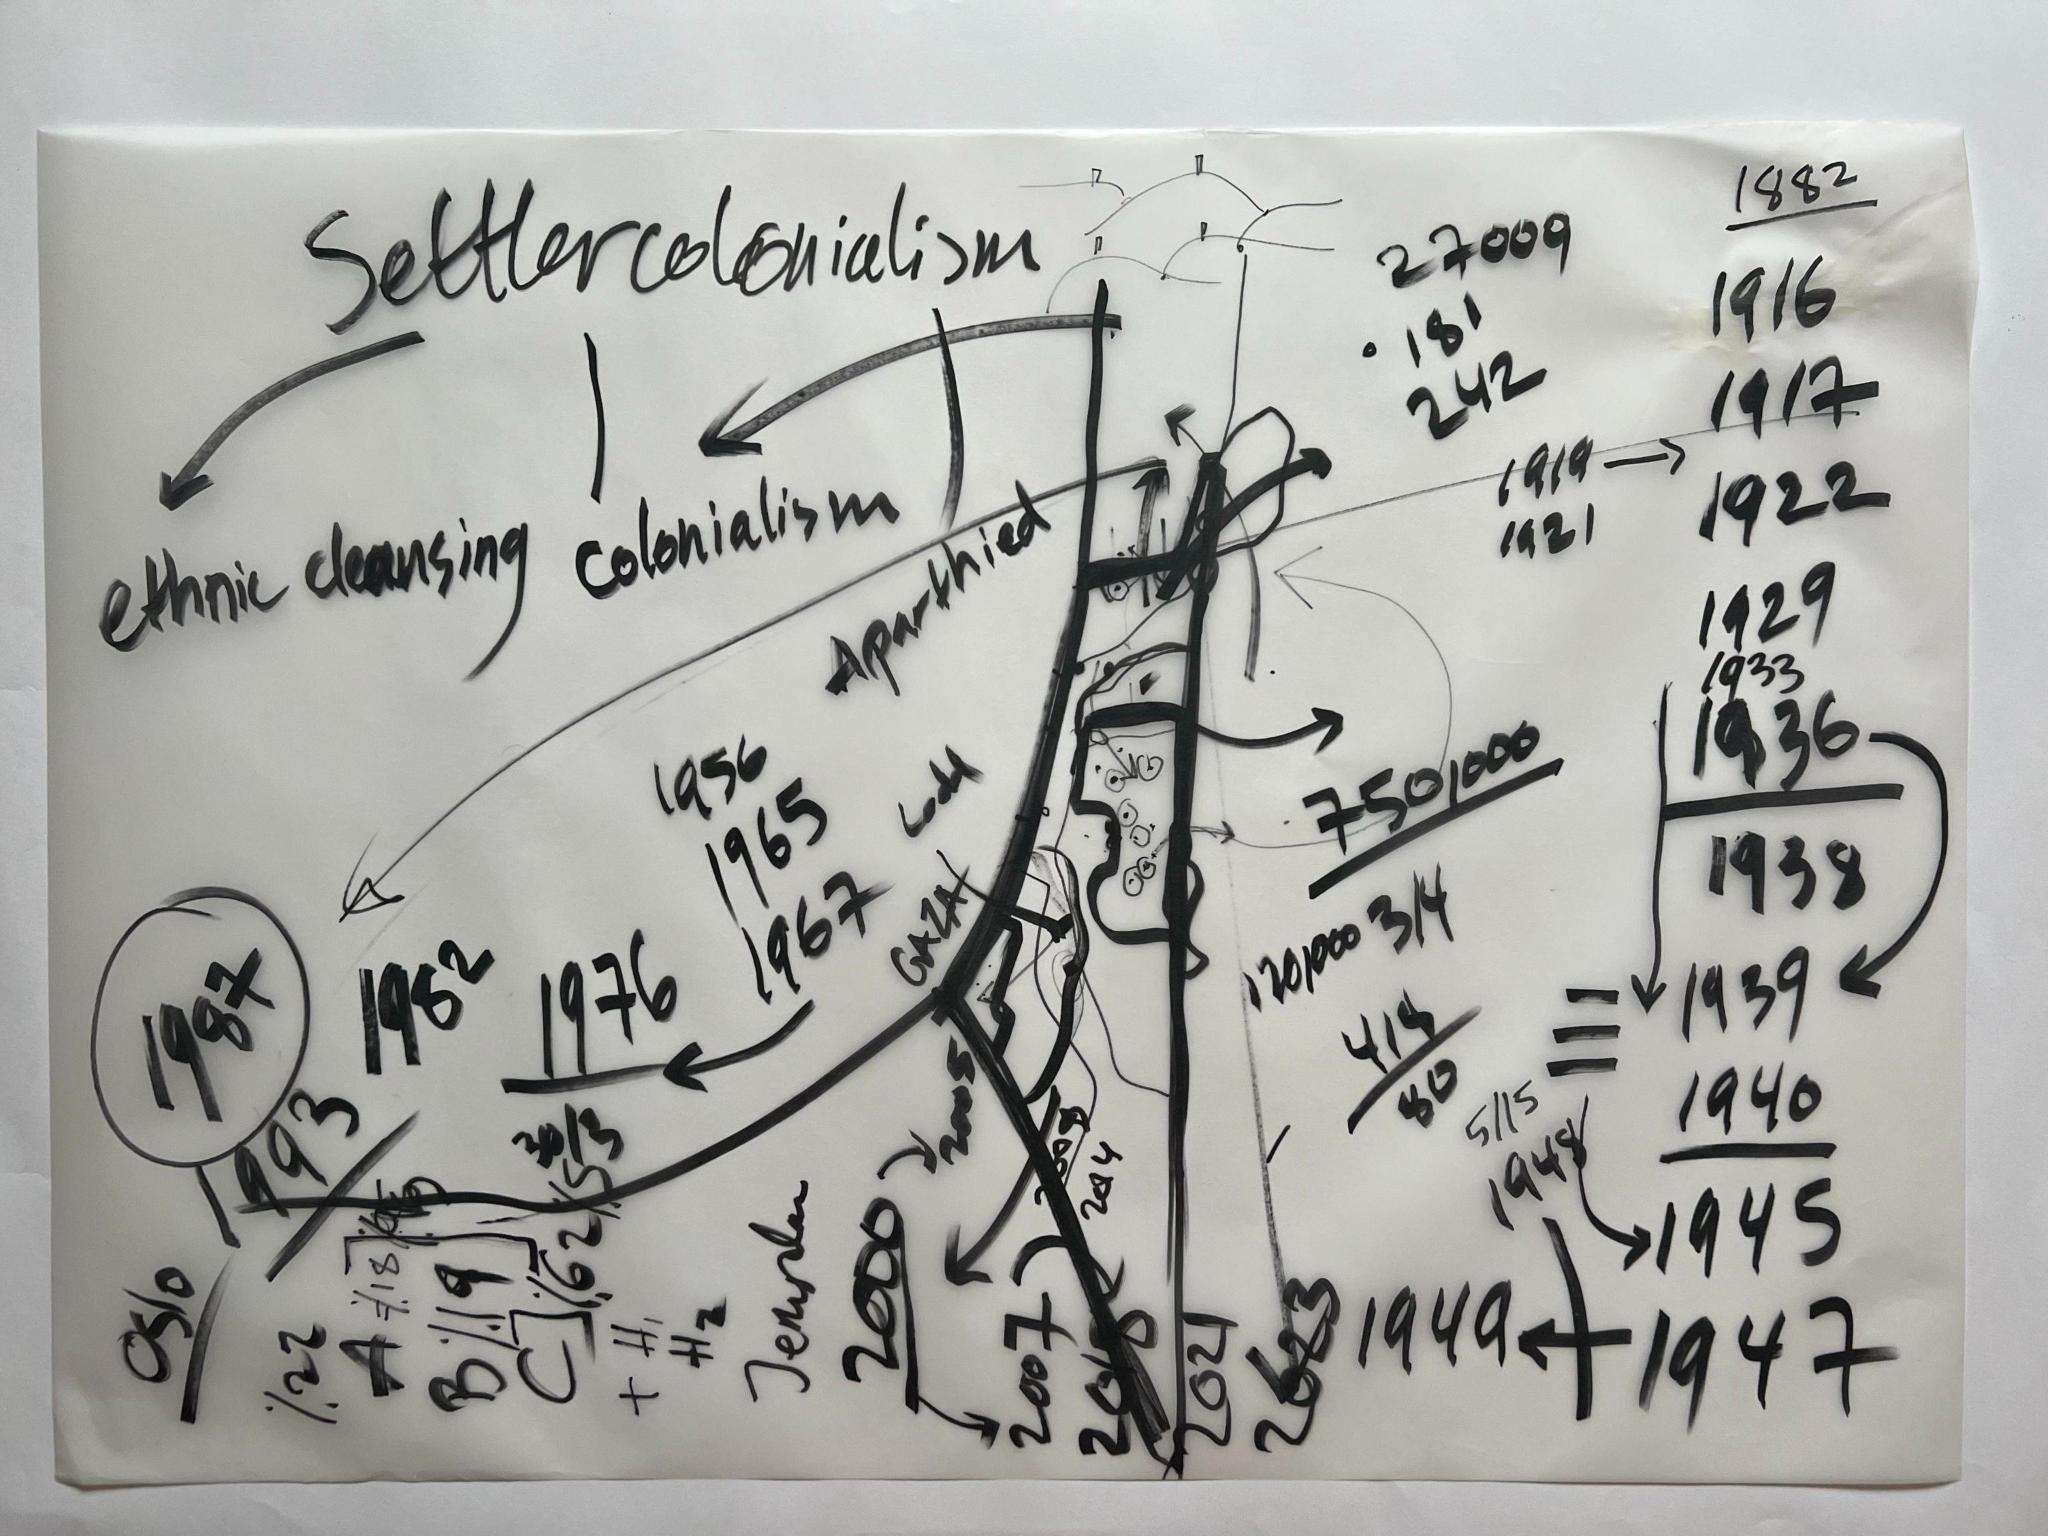 Settlercolonialism
ethnic cleansing
colonialism
Aparthied
27009
181
242
1882
1916
1917
1919
1921
1922
1929
1933
1936
1938
1939
1940
1945
1947
5/15
1948
1949
750,000
120,000 3/4
418
80
1956
1965
1967
1976
30/3
1982
1987
1993
Oslo
٪22
A ٪18
B ٪19
C ٪62
+ H1
H2
GAZA
2000
2005
2007
2008
2014
2021
2023